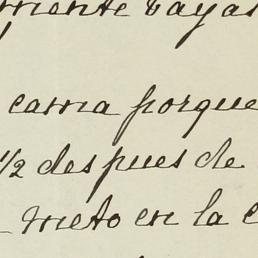 mente vayas
cama porque
1/2 despues de
meto en la c